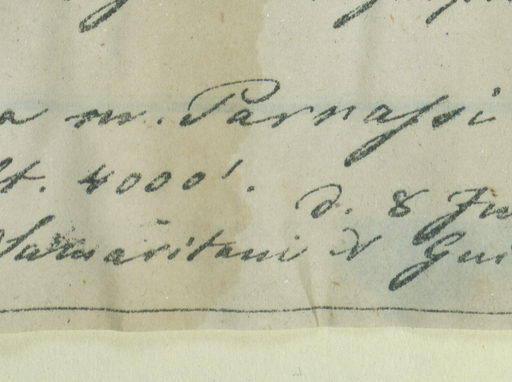 a m. Parnassi
lt. 4000'.
d. 8 Ju
Samaritani & Gui